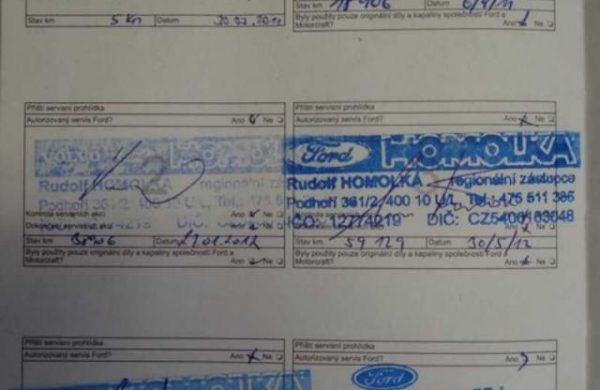 Stav km 5 km Datum 20.02.2011
Stav km 18 906 6/4/11
Byly použity pouze originální díly a kapaliny společnosti Ford a
Motorcraft? Ano Ne
Příští servisní prohlídka
Autorizovaný servis Ford? Ano Ne
Ford HOMOLKA
Rudolf HOMOLKA regionální zástupce
Podhoří 361/2, 400 10 Tel.: 475 511 385
IČO: 12774219 DIČ:
Kontrola servisních akcí Ano Ne
Stav km Datum
Byly použity pouze originální díly a kapaliny společnosti Ford a
Motorcraft? Ano Ne
Příští servisní prohlídka
Autorizovaný servis Ford? Ano Ne
Ford HOMOLKA
Rudolf HOMOLKA regionální zástupce
Podhoří 361/2, 400 10 Tel.: 475 511 385
IČO: 12774219 DIČ:
Stav km 59 129 30/5/12
Byly použity pouze originální díly a kapaliny společnosti Ford a
Motorcraft? Ano Ne
Příští servisní prohlídka
Autorizovaný servis Ford? Ano Ne
Příští servisní prohlídka
Autorizovaný servis Ford? Ano Ne
Ford